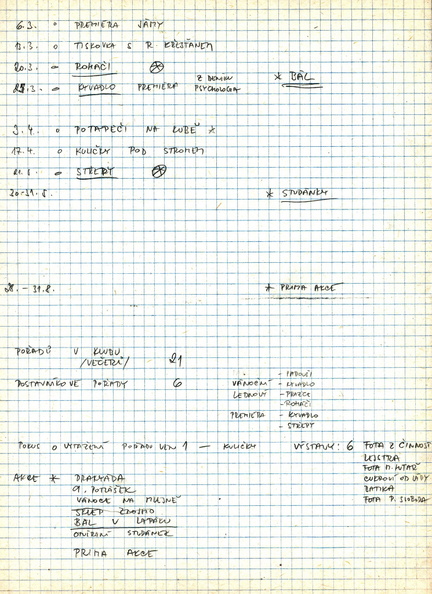 6.3. o PREMIÉRA JÁMY
13.3. o TISKOVKA S R. KŘESŤANEM
20.3. - ROHÁČI
28.3. - KYVADLO PREMIÉRA Z DENÍKU PSYCHOLOGA * BÁL
3.4. o POTÁPĚČI NA KUBĚ *
17.4. o KULIČKY POD STROMEM
- STŘEPY
20-31.5. * STUDÁNKY
28. - 31.8. * PRIMA AKCE
POŘADŮ V KLUBU /VEČERŮ/ 21
POSTAVNÍKOVÉ POŘADY 6
VÁNOČNÍ - KYVADLO
LEDNOVÝ - PRAŽCE
- ROHÁČI
PREMIÉRA - KYVADLO
- STŘEPY
POKUS O VYTAŽENÍ POŘADU VEN 1 — KULIČKY
VÝSTAVY: 6 FOTA Z ČINNOSTI
LEJSTRA
FOTA M. KUTAŘ
CUKROVÍ OD LÁDY
BATIKA
FOTA P. SVOBODA
AKCE * DRAKIÁDA
9. POTLÁSEK
VÁNOCE NA MLEJNĚ
SKLEP ZNOJMO
BÁL V LAPÁKU
OTVÍRÁNÍ STUDÁNEK
PRIMA AKCE